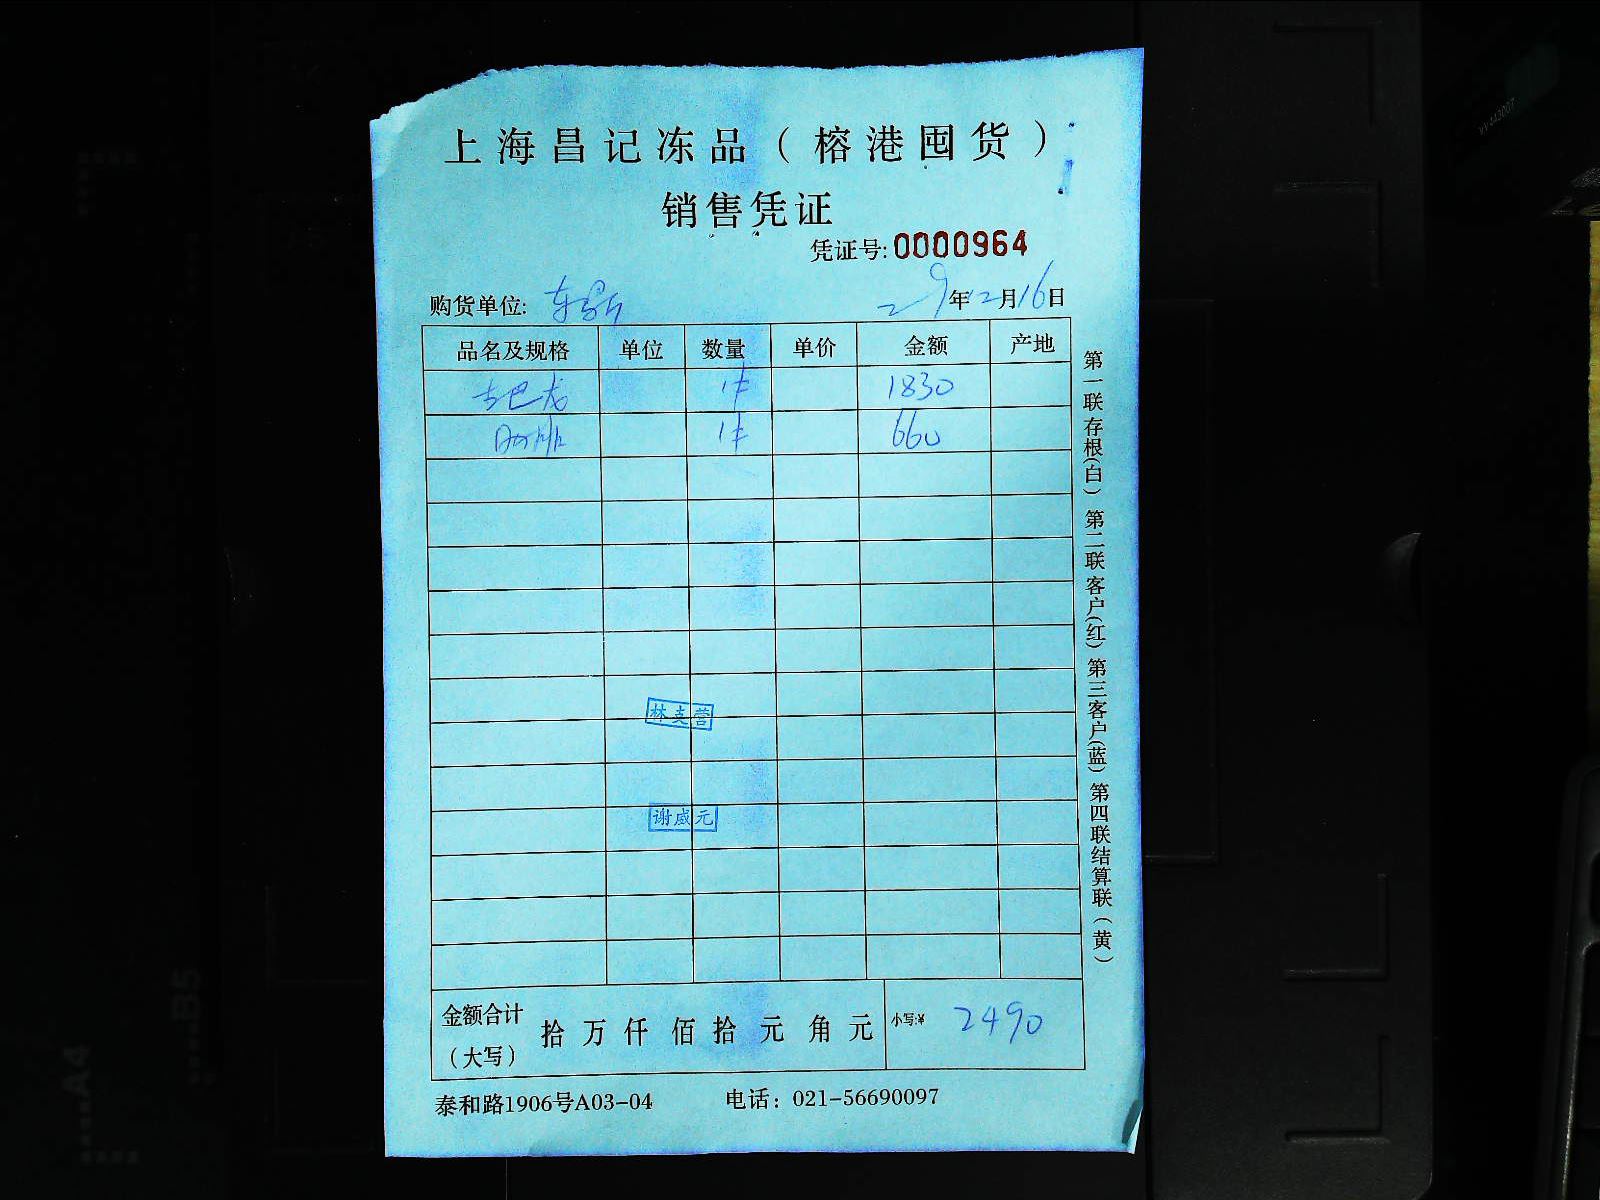 上海昌记冻品（榕港囤货）
销售凭证
凭证号:0000964
购货单位: 年12月16日
品名及规格 单位 数量 单价 金额 产地
古巴龙 1件 1830
1件 660
林克营
谢威元
金额合计（大写） 拾 万 仟 佰 拾 元 角 元 小写:¥ 2490
泰和路1906号A03-04 电话：021-56690097
第一联存根(白) 第二联客户(红) 第三客户(蓝) 第四联结算联(黄)
B5
A4